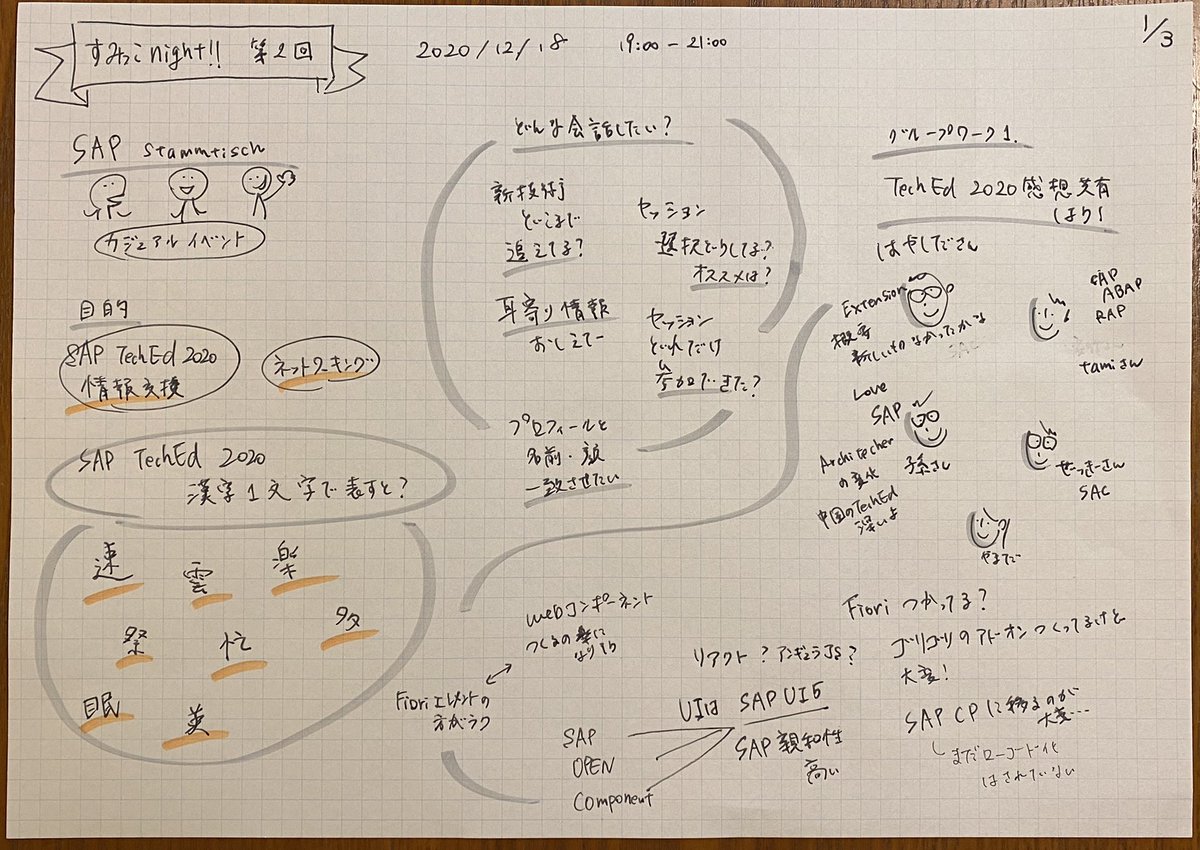 すみっこnight!! 第2回
2020/12/18 19:00-21:00
1/3
SAP Stammtisch
カジュアルイベント
目的
SAP TechEd 2020
情報交換
ネットワーキング
SAP TechEd 2020
漢字1文字で表すと?
速 雲 楽
祭 忙 多
眠 英
どんな会話したい?
新技術
どこまで
追えてる?
セッション
選択どうしてる?
オススメは?
耳寄り情報
おしえてー
セッション
どれだけ
参加できた?
プロフィールと
名前・顔
一致させたい
グループワーク1.
TechEd 2020 感想共有
はやしださん
Extension
概要
新しいものなかったかな
SAP
ABAP
RAP
tamiさん
Love
SAP
Architecher
の変化
子孫さん
中国のTechEd
深いよ
せっきーさん
SAC
やまだ
webコンポーネント
つくるの楽に
なりそう
Fioriエレメントの
方がラク
リアクト? アンギュラJS?
UIは SAP UI5
SAP 親和性
高い
SAP
OPEN
Component
Fiori つかってる?
ゴリゴリのアドオンつくってるけど
大変!
SAP CPに移るのが
大変…
まだローコード化
はされていない